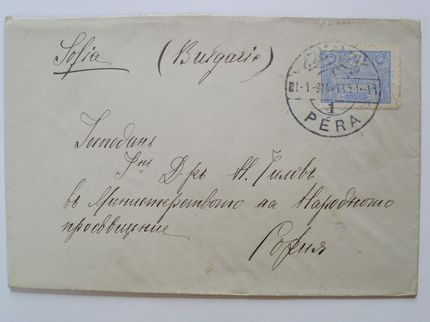 Sofia (Bulgaria)
1-1-914
1
PÉRA
Господинъ
Г-нъ Д-ръ М. Тиловъ
въ Министерството на Народното
просвѣщение
София